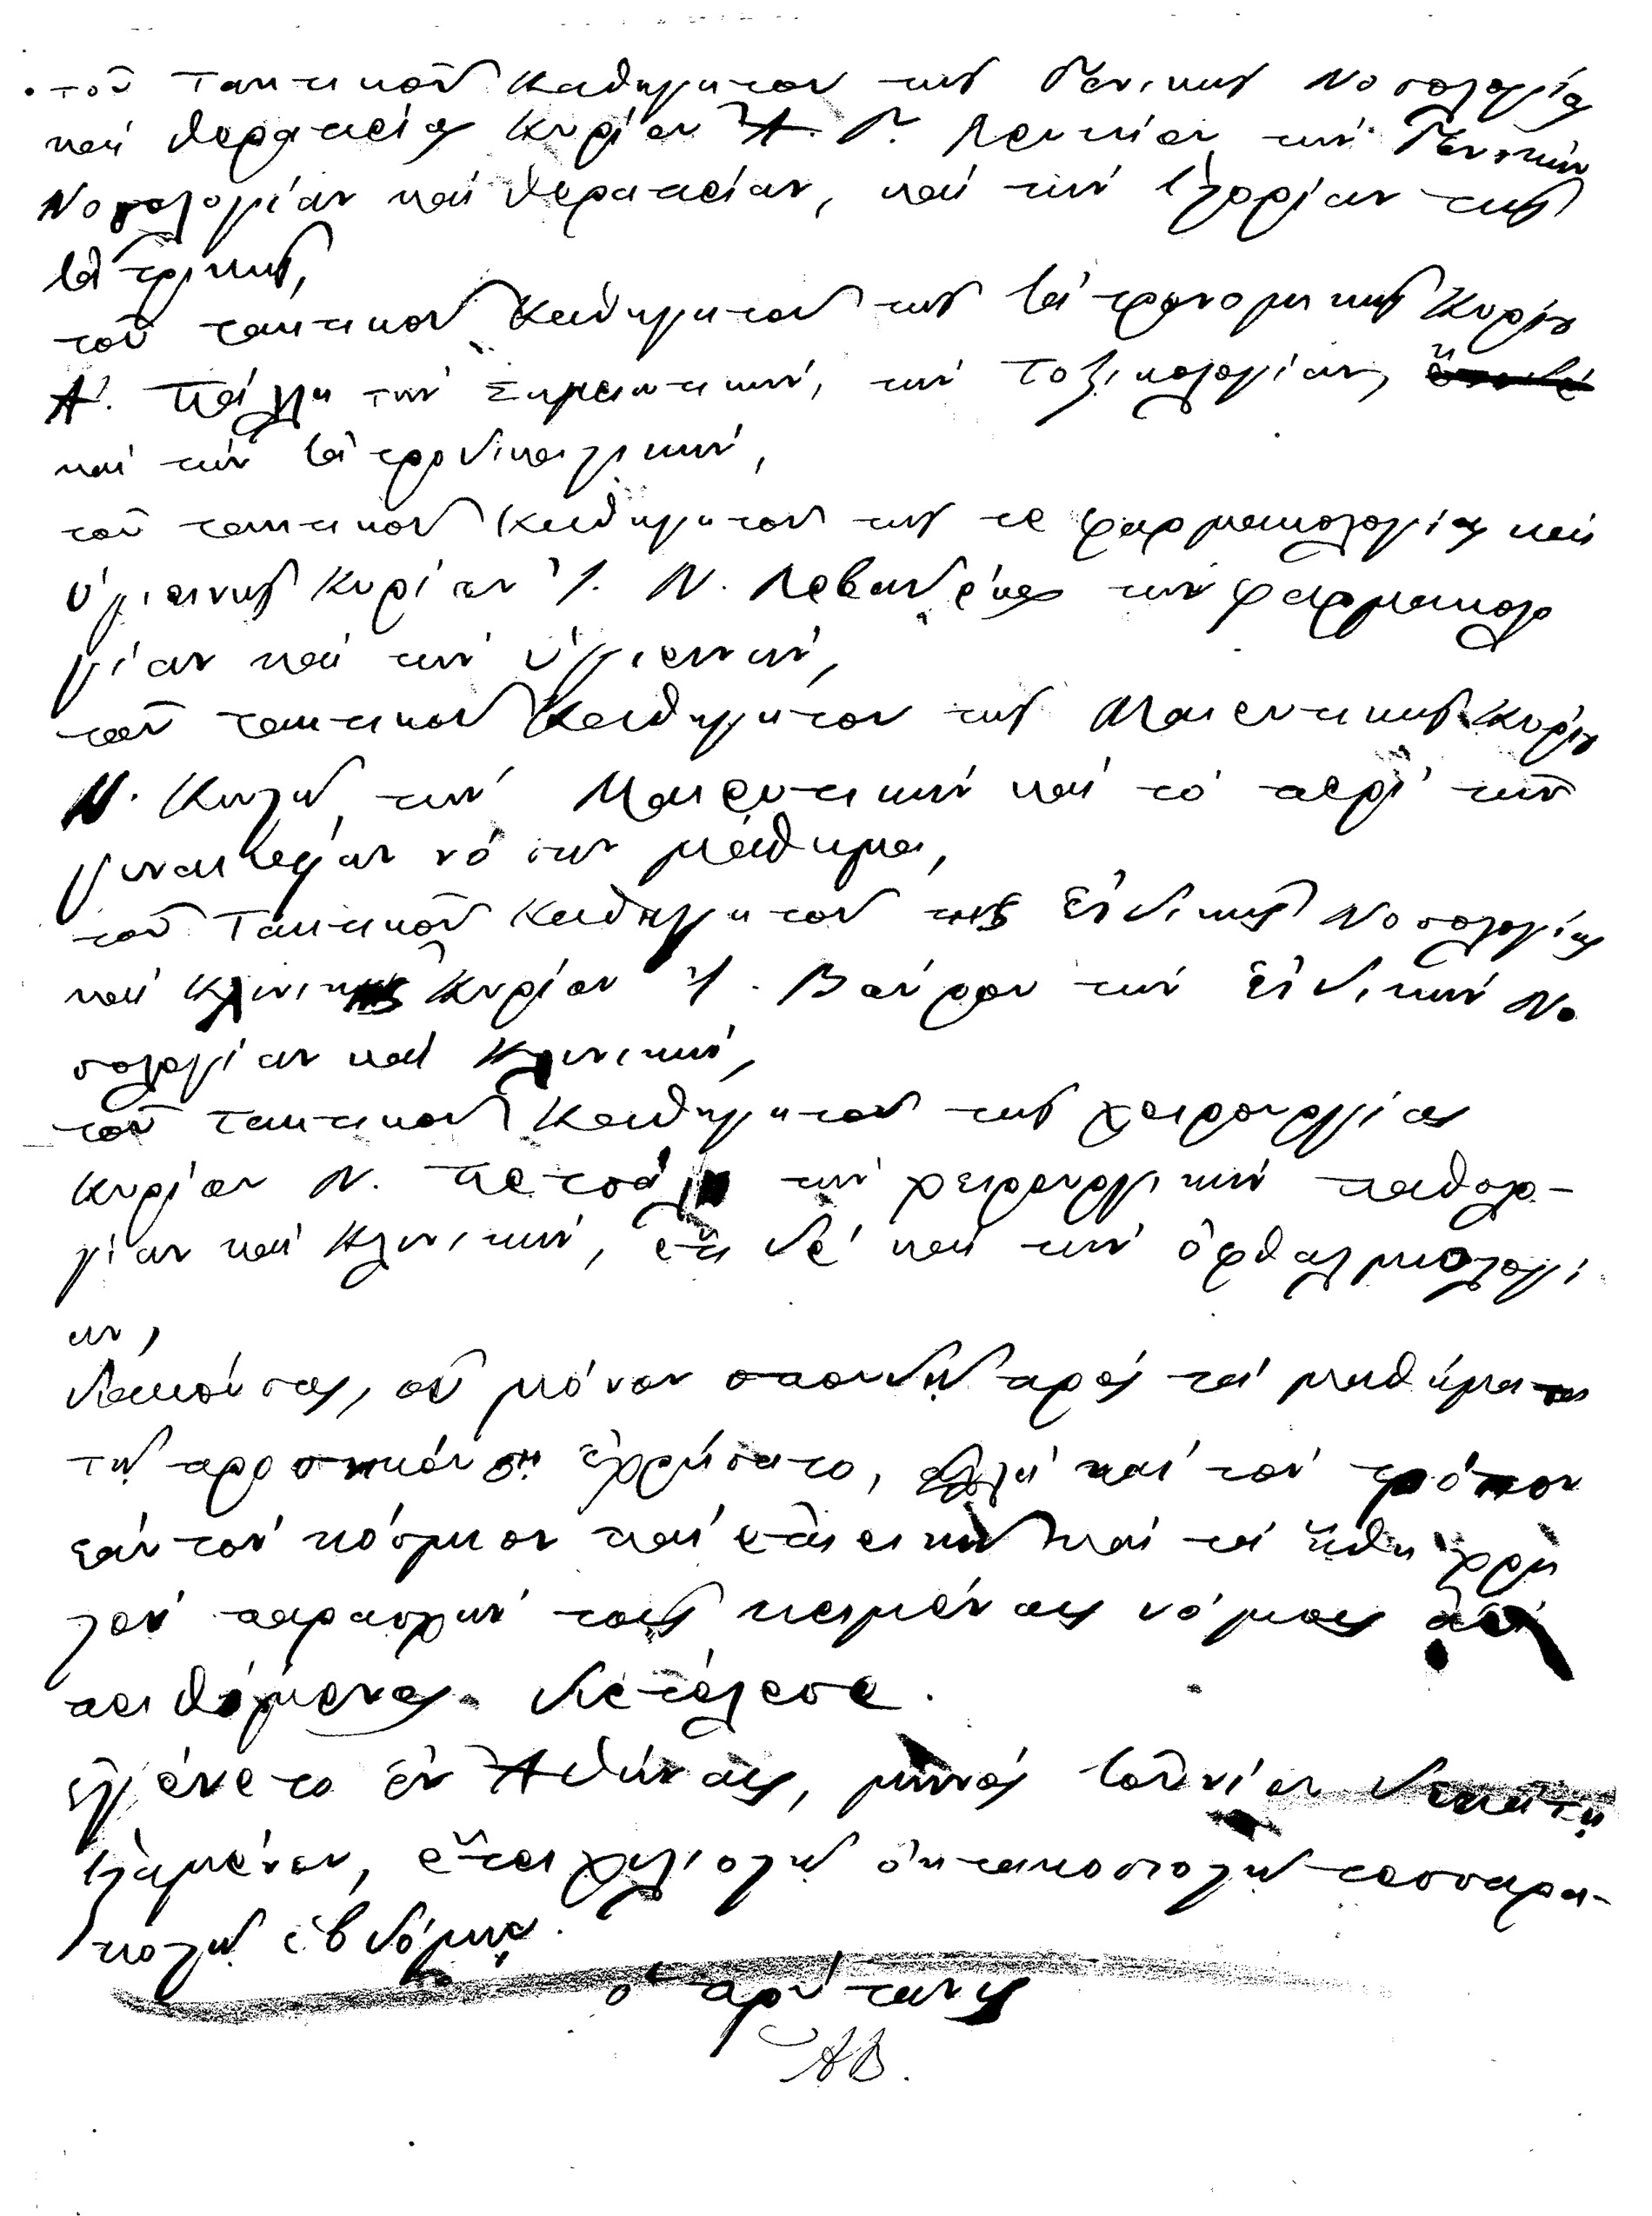 τοῦ Τακτικοῦ Καθηγητοῦ τῆς Γενικῆς Νοσολογίας
καὶ θεραπείας Κυρίου Ἀ. Γ. Λευκίου τὴν Γενικὴν
Νοσολογίαν καὶ θεραπείαν, καὶ τὴν ἱστορίαν τῆς
Ἰατρικῆς,
τοῦ τακτικοῦ Καθηγητοῦ τῆς Ἰατρονομικῆς Κυρίου
Ἀ. Πάλλη τὴν Σημειωτικὴν, τὴν Τοξικολογίαν,
καὶ τὴν Ἰατροδικαστικὴν,
τοῦ τακτικοῦ Καθηγητοῦ τῆς τε φαρμακολογίας καὶ
ὑγιεινῆς Κυρίου Ἰ. Ν. Λεβαδέως τὴν φαρμακολο
γίαν καὶ τὴν ὑγιεινὴν,
τοῦ τακτικοῦ Καθηγητοῦ τῆς Μαιευτικῆς Κυρίου
Ν. Κωστῆ τὴν Μαιευτικὴν καὶ τὸ περὶ τῶν
γυναικείων νόσων μάθημα,
τοῦ Τακτικοῦ Καθηγητοῦ τῆς Εἰδικῆς Νοσολογίας
καὶ Κλινικῆς Κυρίου Ἰ. Βούρου τὴν Εἰδικὴν Νο
σολογίαν καὶ Κλινικὴν,
τοῦ Τακτικοῦ Καθηγητοῦ τῆς χειρουργίας
Κυρίου Ν. Πετσάλη τὴν χειρουργικὴν παθολο-
γίαν καὶ Κλινικὴν, ἔτι δὲ καὶ τὴν ὀφθαλμολογί
αν,
διακούσας, οὐ μόνον σπουδῇ πρὸς τὰ μαθήματα
τῇ προσηκούσῃ ἐχρήσατο, ἀλλὰ καὶ τὸν τρόπον
ἑαυτὸν κόσμιον καὶ ἐπιεικῆ καὶ τὰ ἤθη χρη
στὸν παρασχὼν τοῖς κειμένοις νόμοις ἀεὶ
πειθόμενος διετέλεσε.
ἐγένετο ἐν Ἀθήναις, μηνὸς Ἰουνίου δεκάτῃ
ἱσταμένου, ἔτει χιλιοστῷ ὀκτακοσιοστῷ τεσσαρα-
κοστῷ ἑβδόμῳ.
ὁ πρύτανις
ΑΒ.